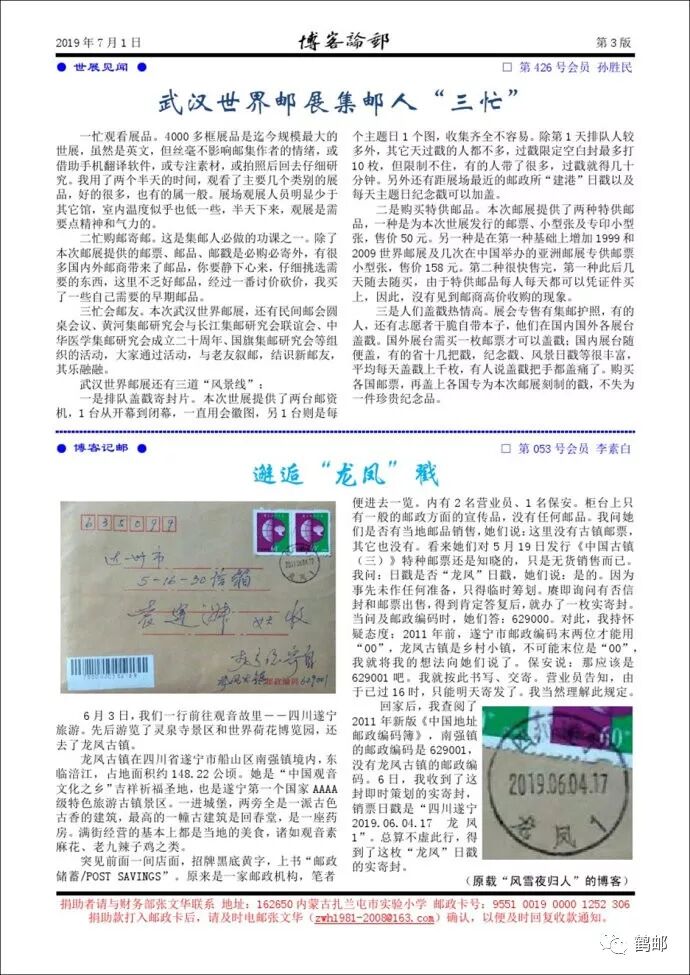 2019年7月1日
博客論邮
第3版
● 世展见闻 ●
□ 第426号会员 孙胜民
武汉世界邮展集邮人“三忙”
一忙观看展品。4000多框展品是迄今规模最大的
世展，虽然是英文，但丝毫不影响邮集作者的情绪，或
借助手机翻译软件，或专注素材，或拍照后回去仔细研
究。我用了两个半天的时间，观看了主要几个类别的展
品，好的很多，也有的属一般。展场观展人员明显少于
其它馆，室内温度似乎也低一些，半天下来，观展是需
要点精神和气力的。
二忙购邮寄邮。这是集邮人必做的功课之一。除了
本次邮展提供的邮票、邮品、邮戳是必购必寄外，有很
多国内外邮商带来了邮品，你要静下心来，仔细挑选需
要的东西，这里不乏好邮品，经过一番讨价砍价，我买
了一些自己需要的早期邮品。
三忙会邮友。本次武汉世界邮展，还有民间邮会圆
桌会议、黄河集邮研究会与长江集邮研究会联谊会、中
华医学集邮研究会成立二十周年、国旗集邮研究会等组
织的活动，大家通过活动，与老友叙邮，结识新邮友，
其乐融融。
武汉世界邮展还有三道“风景线”：
一是排队盖戳寄封片。本次世展提供了两台邮资
机，1台从开幕到闭幕，一直用会徽图，另1台则是每
个主题日1个图，收集齐全不容易。除第1天排队人较
多外，其它天过戳的人都不多，过戳限定空白封最多打
10枚，但限制不住，有的人带了很多，过戳就得几十
分钟。另外还有距展场最近的邮政所“建港”日戳以及
每天主题日纪念戳可以加盖。
二是购买特供邮品。本次邮展提供了两种特供邮
品，一种是为本次世展发行的邮票、小型张及专印小型
张，售价50元。另一种是在第一种基础上增加1999和
2009世界邮展及几次在中国举办的亚洲邮展专供邮票
小型张，售价158元。第二种很快售完，第一种此后几
天随去随买，由于特供邮品每人每天都可以凭证件买
上，因此，没有见到邮商高价收购的现象。
三是人们盖戳热情高。展会专售有集邮护照，有的
人，还有志愿者干脆自带本子，他们在国内国外各展台
盖戳。国外展台需买一枚邮票才可以盖戳；国内展台随
便盖，有的省十几把戳，纪念戳、风景日戳等很丰富，
平均每天盖戳上千枚，有人说盖戳把手都盖痛了。购买
各国邮票，再盖上各国专为本次邮展刻制的戳，不失为
一件珍贵纪念品。
● 博客记邮 ●
□ 第053号会员 李素白
邂逅“龙凤”戳
635099
5-16-30信箱
收
邮政编码629001
2019.06.04.17
6月3日，我们一行前往观音故里－－四川遂宁
旅游。先后游览了灵泉寺景区和世界荷花博览园，还
去了龙凤古镇。
龙凤古镇在四川省遂宁市船山区南强镇境内，东
临涪江，占地面积约148.22公顷。她是“中国观音
文化之乡”吉祥祈福圣地，也是遂宁第一个国家AAAA
级特色旅游古镇景区。一进城堡，两旁全是一派古色
古香的建筑，最高的一幢古建筑是回春堂，是一座药
房。满街经营的基本上都是当地的美食，诸如观音素
麻花、老九辣子鸡之类。
突见前面一间店面，招牌黑底黄字，上书“邮政
储蓄/POST SAVINGS”。原来是一家邮政机构，笔者
便进去一览。内有2名营业员、1名保安。柜台上只
有一般的邮政方面的宣传品，没有任何邮品。我问她
们是否有当地邮品销售，她们说：这里没有古镇邮票，
其它也没有。看来她们对5月19日发行《中国古镇
（三）》特种邮票还是知晓的，只是无货销售而已。
我问：日戳是否“龙凤”日戳，她们说：是的。因为
事先未作任何准备，只得临时筹划。赓即询问有否信
封和邮票出售，得到肯定答复后，就办了一枚实寄封。
当问及邮政编码时，她们答：629000。对此，我持怀
疑态度：2011年前，遂宁市邮政编码末两位才能用
“00”，龙凤古镇是乡村小镇，不可能末位是“00”，
我就将我的想法向她们说了。保安说：那应该是
629001吧。我就按此书写、交寄。营业员告知，由
于已过16时，只能明天寄发了。我当然理解此规定。
回家后，我查阅了
2011年新版《中国地址
邮政编码簿》，南强镇
的邮政编码是629001，
没有龙凤古镇的邮政编
码。6日，我收到了这
封即时策划的实寄封，
销票日戳是“四川遂宁
2019.06.04.17 龙凤
1”。总算不虚此行，得
到了这枚“龙凤”日戳
的实寄封。
2019.06.04.17
龙凤1
（原载“风雪夜归人”的博客）
捐助者请与财务部张文华联系 地址：162650内蒙古扎兰屯市实验小学 邮政卡号：9551 0019 0000 1252 306
捐助款打入邮政卡后，请及时电邮张文华（zwh1981-2008@163.com）确认，以便及时回复收款通知。
鹤邮